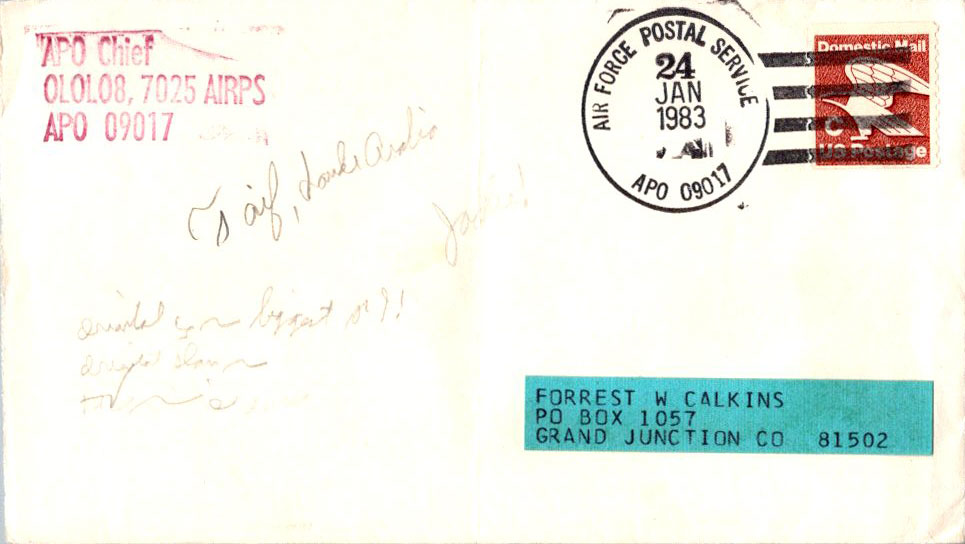 APO Chief
OLOL08, 7025 AIRPS
APO 09017
AIR FORCE POSTAL SERVICE
24
JAN
1983
AM
APO 09017
Domestic Mail
C
US Postage
Taif, Saudi Arabia
biggest
FORREST W CALKINS
PO BOX 1057
GRAND JUNCTION CO 81502